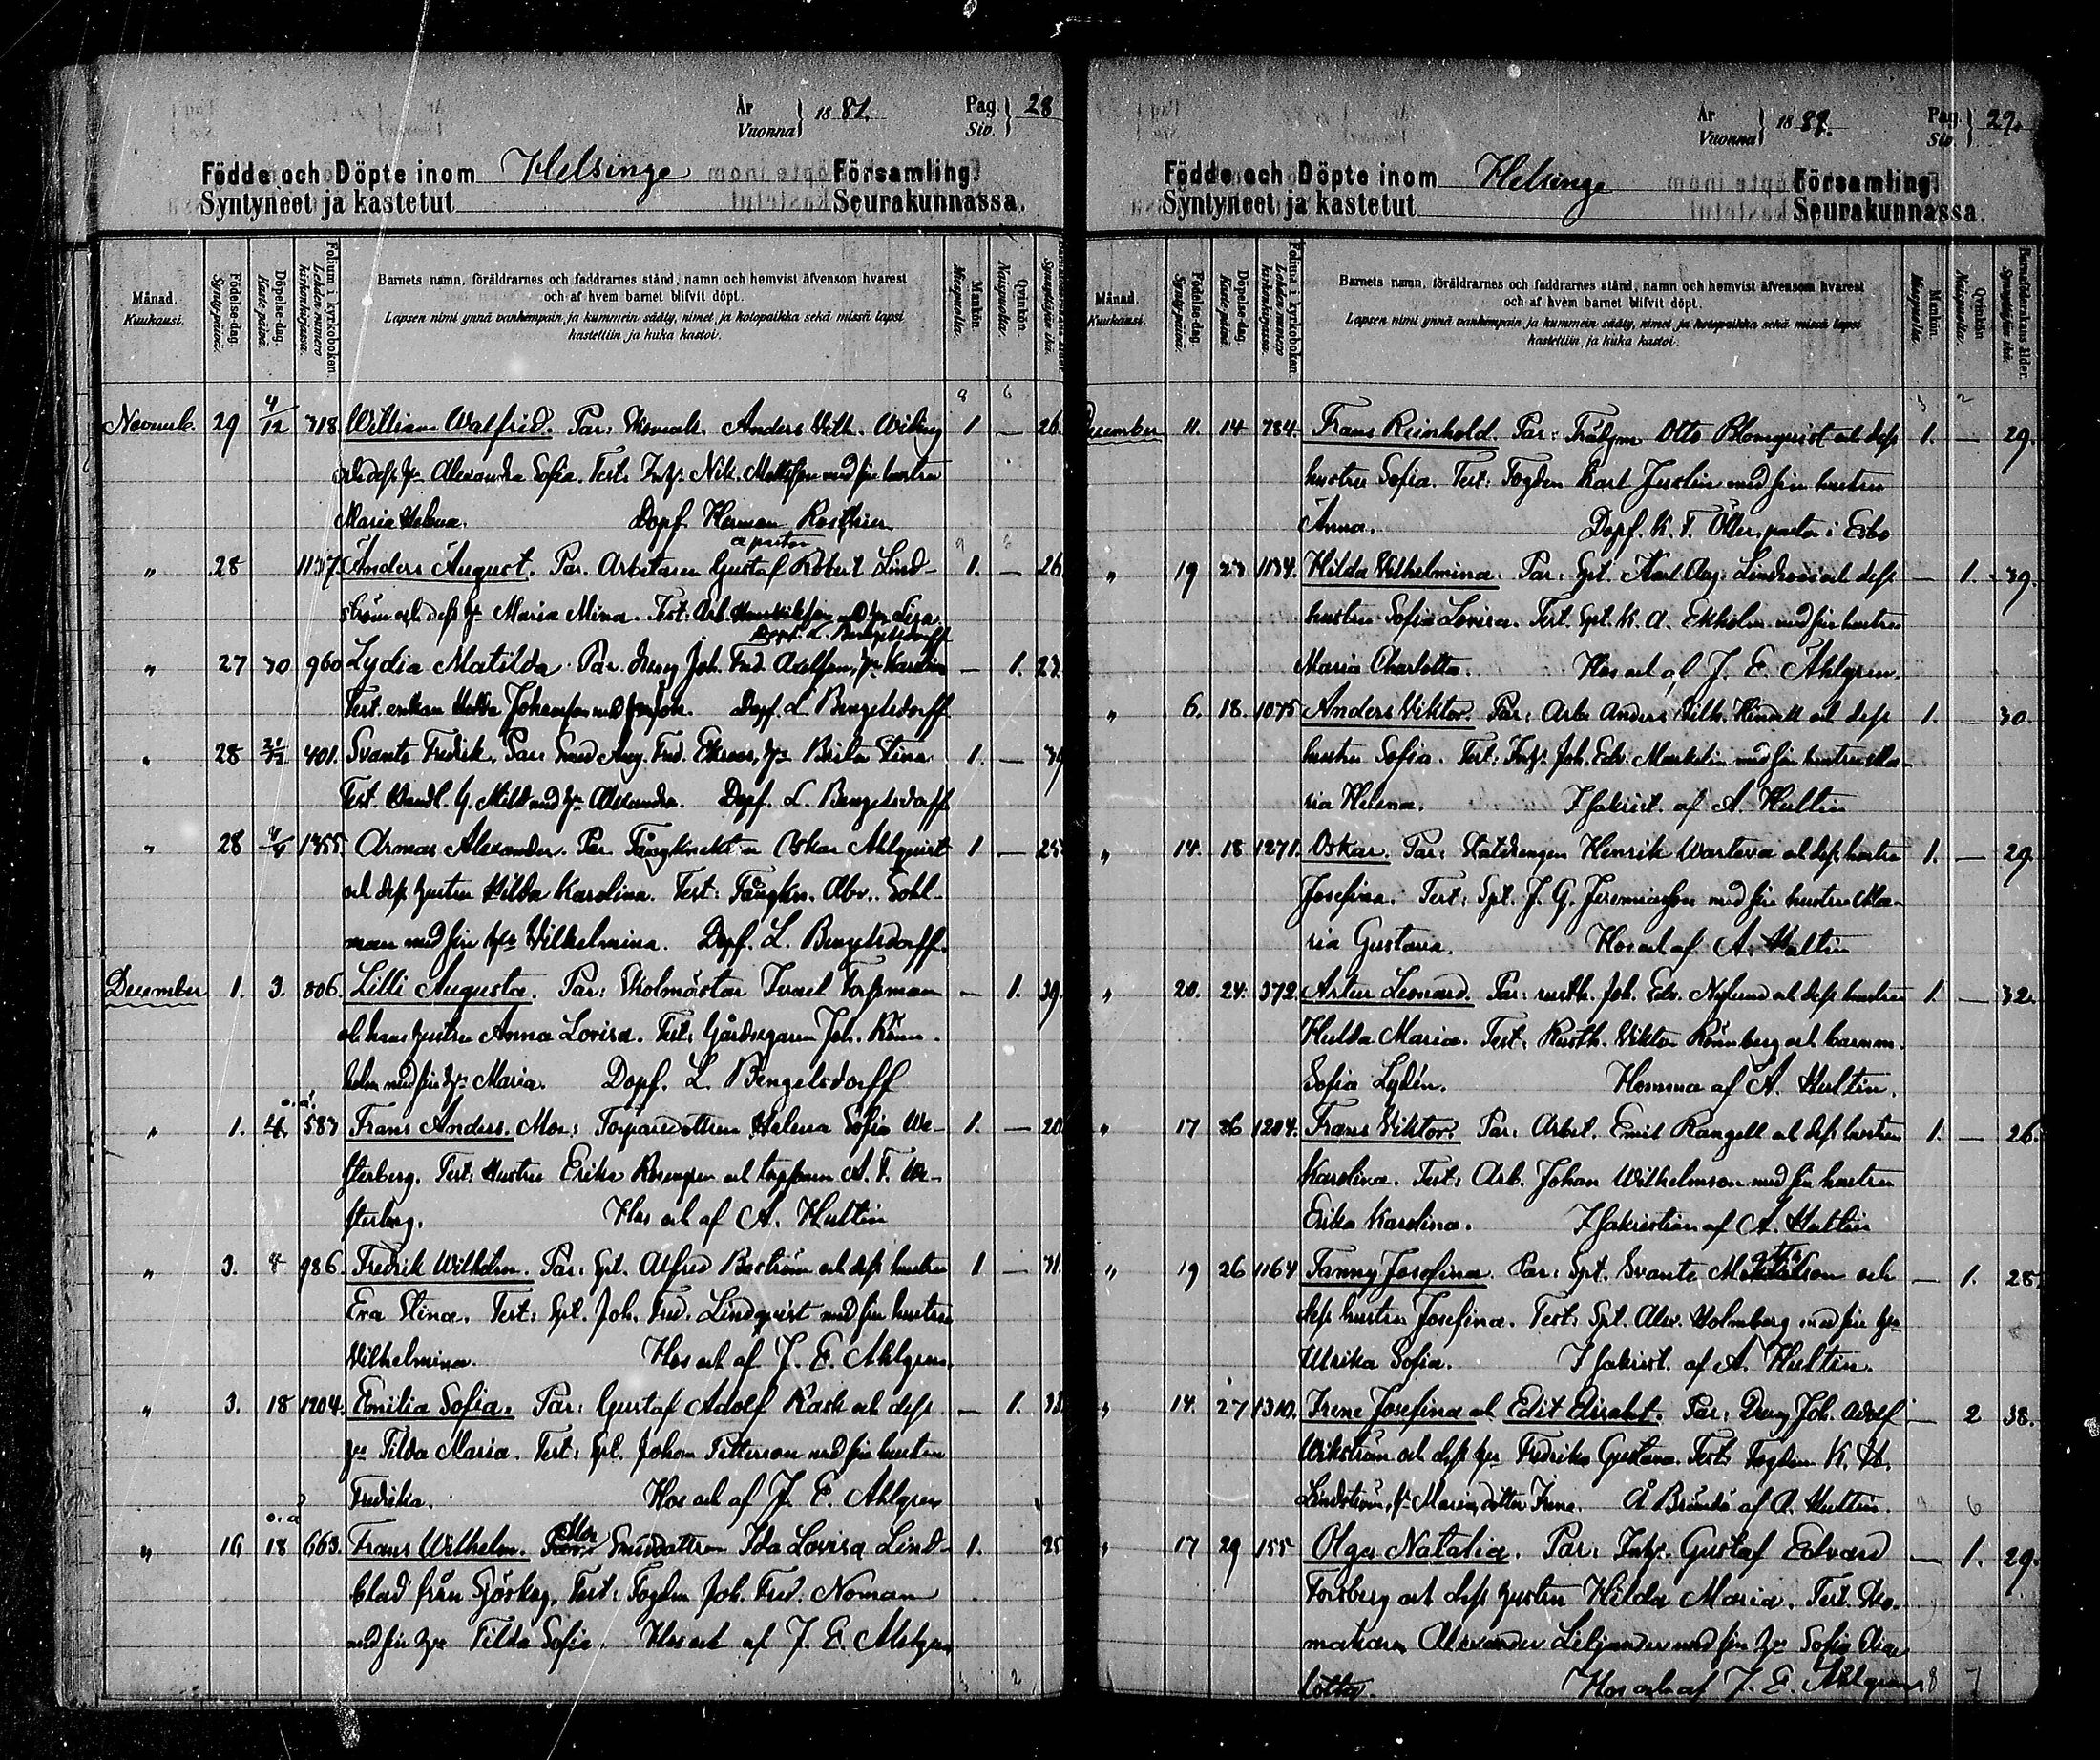 År
Vuonna
1881.
Pag
Siv.
28
Födde och Döpte inom Helsinge Församling.
Syntyneet ja kastetut Seurakunnassa.
Månad.
Kuukausi.
Födelse-dag.
Syntypäivä.
Döpelse-dag.
Kastepäivä.
Folium i kyrkoboken.
Lehden numero kirkonkirjassa.
Barnets namn, föräldrarnes och faddrarnes stånd, namn och hemvist äfvensom hvarest
och af hvem barnet blifvit döpt.
Lapsen nimi ynnä vanhempain ja kummein sääty, nimet ja kotopaikka sekä missä lapsi
kastettiin ja kuka kastoi.
Mankön.
Miespuolta.
Qvinkön.
Naispuolta.
9 6
29 4/12 718. William Walfrid. Par: Anders Vilh. Wiberg 1. — 26.
och dess hu Alexandra Sofia. Test: Nik. Mattsson med sin hustru
Maria Helena. Döpt. Herman Rosthier
a pastor
" 28 1137. Anders August. Par. Arbetaren Gustaf Robert Lind- 1. — 26
ström och dess hu Maria Mina. Test. Arb. Lisa.
Döpt. L. Bengelsdorff
" 27 30 960 Lydia Matilda. Par. Dreng Joh. Fred. Axelsson, hu Karolina — 1. 23.
Test. enkan Hedda Johansson med Döpt. L. Bengelsdorff
" 28 401. Svante Fredrik. Par: Smed Aug. Fred. Ekroos, hu Brita Stina 1. — 39
Test. G. med hu Alexandra. Döpt. L. Bengelsdorff
" 28 1355. Armas Alexander. Par. Fångknekten Oskar Ahlqvist 1 — 25
och dess hustru Hilda Karolina. Test: Fångkn. Alex. Sohl-
man med sin hu Vilhelmina. Döpt. L. Bengelsdorff.
December 1. 3. 806. Lilli Augusta. Par: Skolmästar Israel Forssman — 1. 39.
och hans hustru Anna Lovisa. Test: Gårdsegaren Joh. Rönn-
holm med sin hu Maria. Döpt. L. Bengelsdorff
o. ä.
" 1. 4. 583 Frans Anders. Mor: Torparedottren Helena Sofia We- 1. — 20
sterberg. Test: Hustru Erika Rosengren och torparen A. F. We-
sterberg. Hos och af A. Hultin
" 3. 8 986. Fredrik Wilhelm. Par: Spt. Alfred Boström och dess hustru 1 — 31.
Eva Stina. Test: Spt. Joh. Fred. Lindqvist med sin hustru
Vilhelmina. Hos och af J. E. Ahlgren.
" 3. 18 1204. Emilia Sofia. Par: Gustaf Adolf Rask och dess — 1. 38
hu Tilda Maria. Test: Spt. Johan Petterson med sin hustru
Fredrika. Hos och af J. E. Ahlgren
o. ä
" 16 18 663. Frans Wilhelm. Mor Smeddottren Ida Lovisa Lind- 1. 25
blad från Sjöskog. Test: Fogden Joh. Fred. Noman
med sin hu Tilda Sofia. Hos och af J. E. Ahlgren
3 2
År
Vuonna
1881.
Pag.
Siv.
29.
Födde och Döpte inom Helsinge Församling.
Syntyneet ja kastetut Seurakunnassa.
Månad.
Kuukausi.
Födelse-dag.
Syntypäivä.
Döpelse-dag.
Kastepäivä.
Folium i kyrkoboken.
Lehden numero kirkonkirjassa.
Barnets namn, föräldrarnes och faddrarnes stånd, namn och hemvist äfvensom hvarest
och af hvem barnet blifvit döpt.
Lapsen nimi ynnä vanhempain ja kummein sääty, nimet ja kotopaikka sekä missä lapsi
kastettiin ja kuka kastoi.
Mankön.
Miespuolta.
Qvinkön
Naispuolta.
Barnaföderskans ålder.
Synnyttäjän ikä.
3 2
December 11. 14 784. Frans Reinhold. Par: Otto Blomqvist och dess 1. — 29.
hustru Sofia. Test: Fogden Karl Justin med sin hustru
Anna. Döpt. K. F. Öller, pastor i Esbo
" 19 23 1134. Hilda Vilhelmina. Par: Spt. Karl Aug. Lindroos och dess — 1. 39.
hustru Sofia Lovisa. Test. Spt. K. A. Ekholm med sin hustru
Maria Charlotta. Hos och af J. E. Ahlgren.
" 6. 18. 1075 Anders Viktor. Par: Arb. Anders Vilh. och dess 1. — 30.
hustru Sofia. Test: Joh. Edv. Markelin med sin hustru Ma-
ria Helena. I sakrist. af A. Hultin
" 14. 18 1271. Oskar. Par: Statdrengen Henrik Wartova och dess hustru 1. — 29.
Josefina. Test: Spt. J. G. Jeremiasson med sin hustru Ma-
ria Gustava. Hos och af A. Hultin
" 20. 24. 372. Artur Leonard. Par: rusth. Joh. Edv. Nylund och dess hustru 1. — 32.
Hulda Maria. Test: Rusth. Viktor Rönnberg och barnm.
Sofia Lydén. Hemma af A. Hultin.
" 17 26 1204. Frans Viktor. Par: Arbet. Emil Rangell och dess hustru 1. — 26.
Karolina. Test: Arb. Johan Wilhelmson med sin hustru
Erika Karolina. I sakristian af A. Hultin
" 19 26 1164 Fanny Josefina. Par: Spt. Svante och — 1. 28.
dess hustru Josefina. Test: Spt. Alex. Holmberg med sin hu
Ulrika Sofia. I sakrist. af A. Hultin.
" 14. 27 1310. Irene Josefina och Edit Elisabet. Par: Dreng Joh. Adolf — 2 38.
Wikström och dess hu Fredrika Gustava. Test: Fogden K. H.
Lindström, hu Maria, dotter Irene. Å Brändö af A. Hultin. 3 6
" 17 29 155 Olga Natalia. Par: Gustaf Edvard — 1. 29.
Forsberg och dess hustru Hilda Maria. Test. Sko-
makaren Alexander Liljander med sin hu Sofia Char
lotta. Hos och af J. E. Ahlgren 8 7